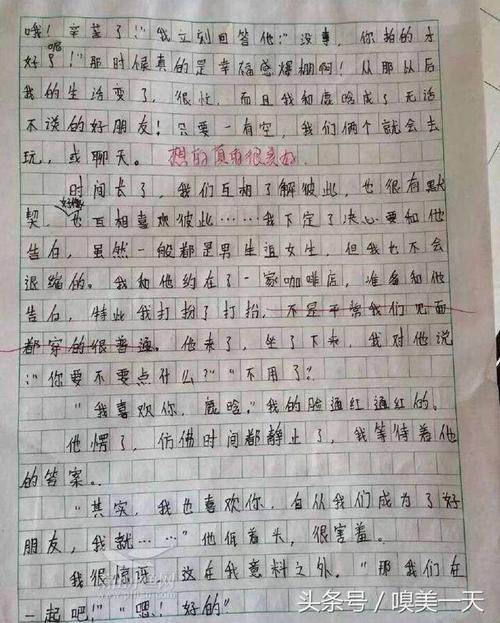 哦！辛苦了！"我立刻回答他:"没事，你拍的才
好呢！"那时候真的是幸福感爆棚啊！从那以后
我的生活变了，很忙，而且我和鹿晗成了无话
不说的好朋友！只要一有空，我们俩个就会去
玩，或聊天。想的真有很美好
时间长了，我们互相了解彼此，也很有默
契，好像也互相喜欢彼此……我下定了决心要和他
告白，虽然一般都是男生追女生，但我也不会
退缩的。我和他约在了一家咖啡店，准备和他
告白，特此我打扮了打扮，不是平常我们见面
都穿的很普通。他来了，坐了下来，我对他说
:"你要不要点什么？""不用了"。
"我喜欢你，鹿晗。"我的脸通红通红的。
他愣了，仿佛时间都静止了，我等待着他
的答案。
"其实，我也喜欢你，自从我们成为了好
朋友，我就……"他低着头，很害羞。
我很惊讶，这在我意料之外。"那我们在
一起吧！""嗯！好的"
头条号/嗅美一天